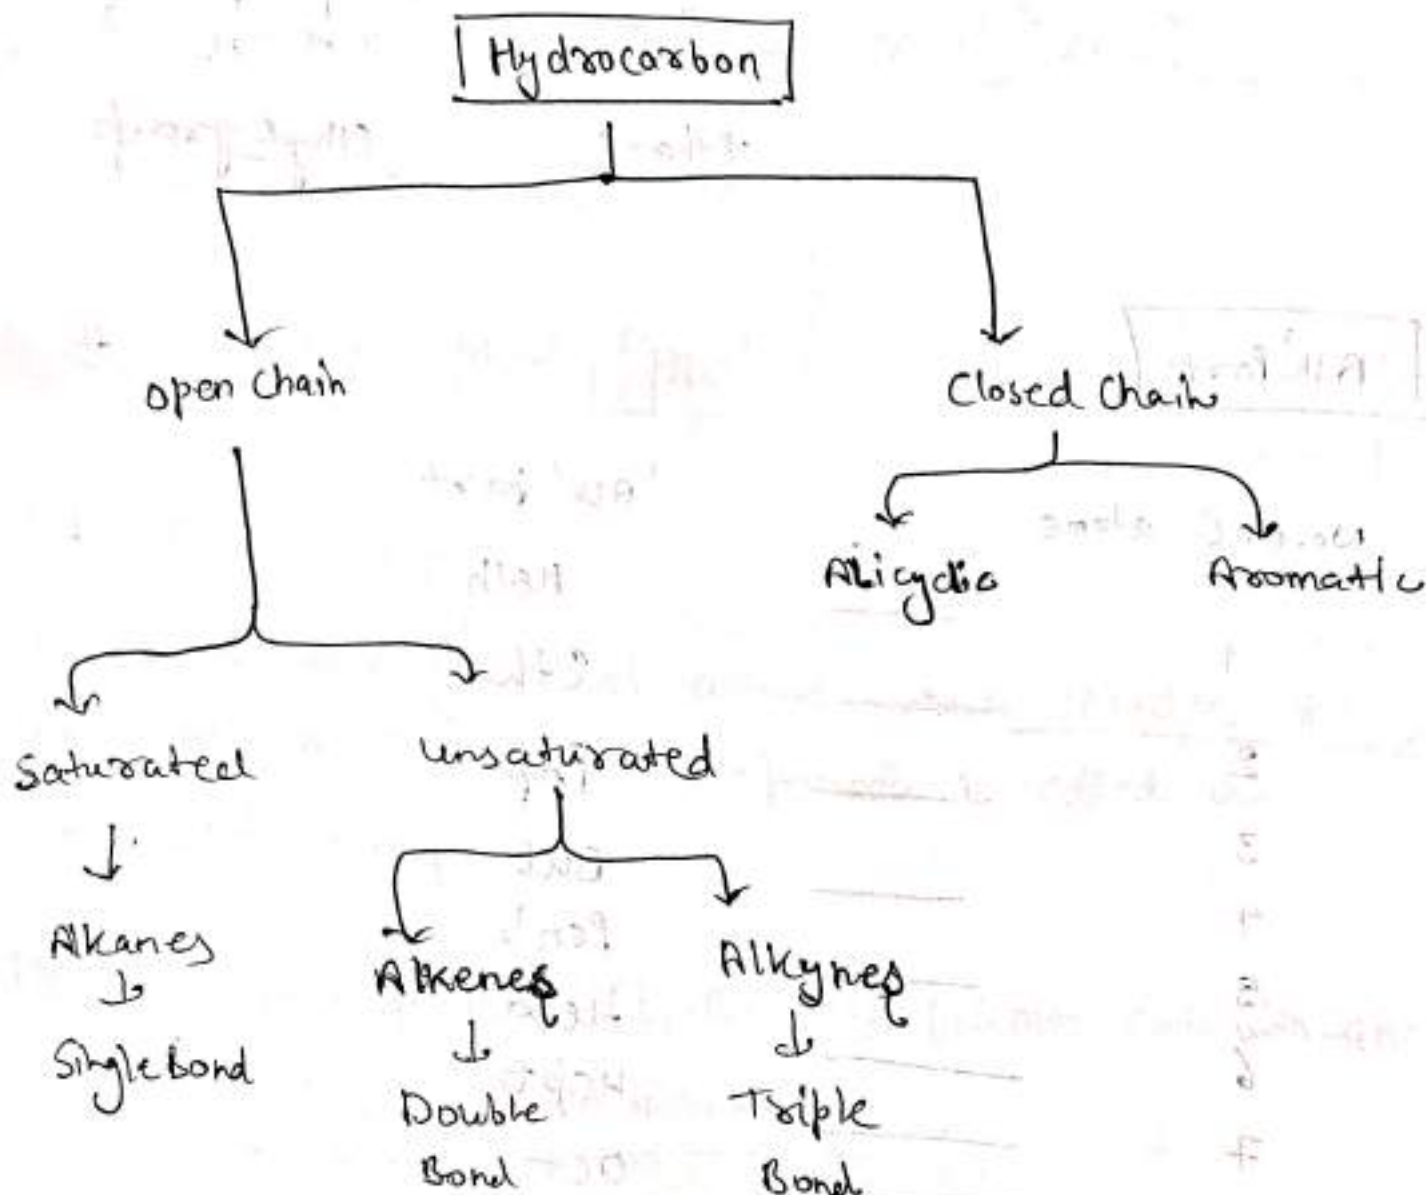 Hydrocarbon
Open Chain
Closed Chain
Alicyclic
Aromatic
Saturated
Unsaturated
Alkanes
Alkenes
Alkynes
Single Bond
Double
Bond
Triple
Bond